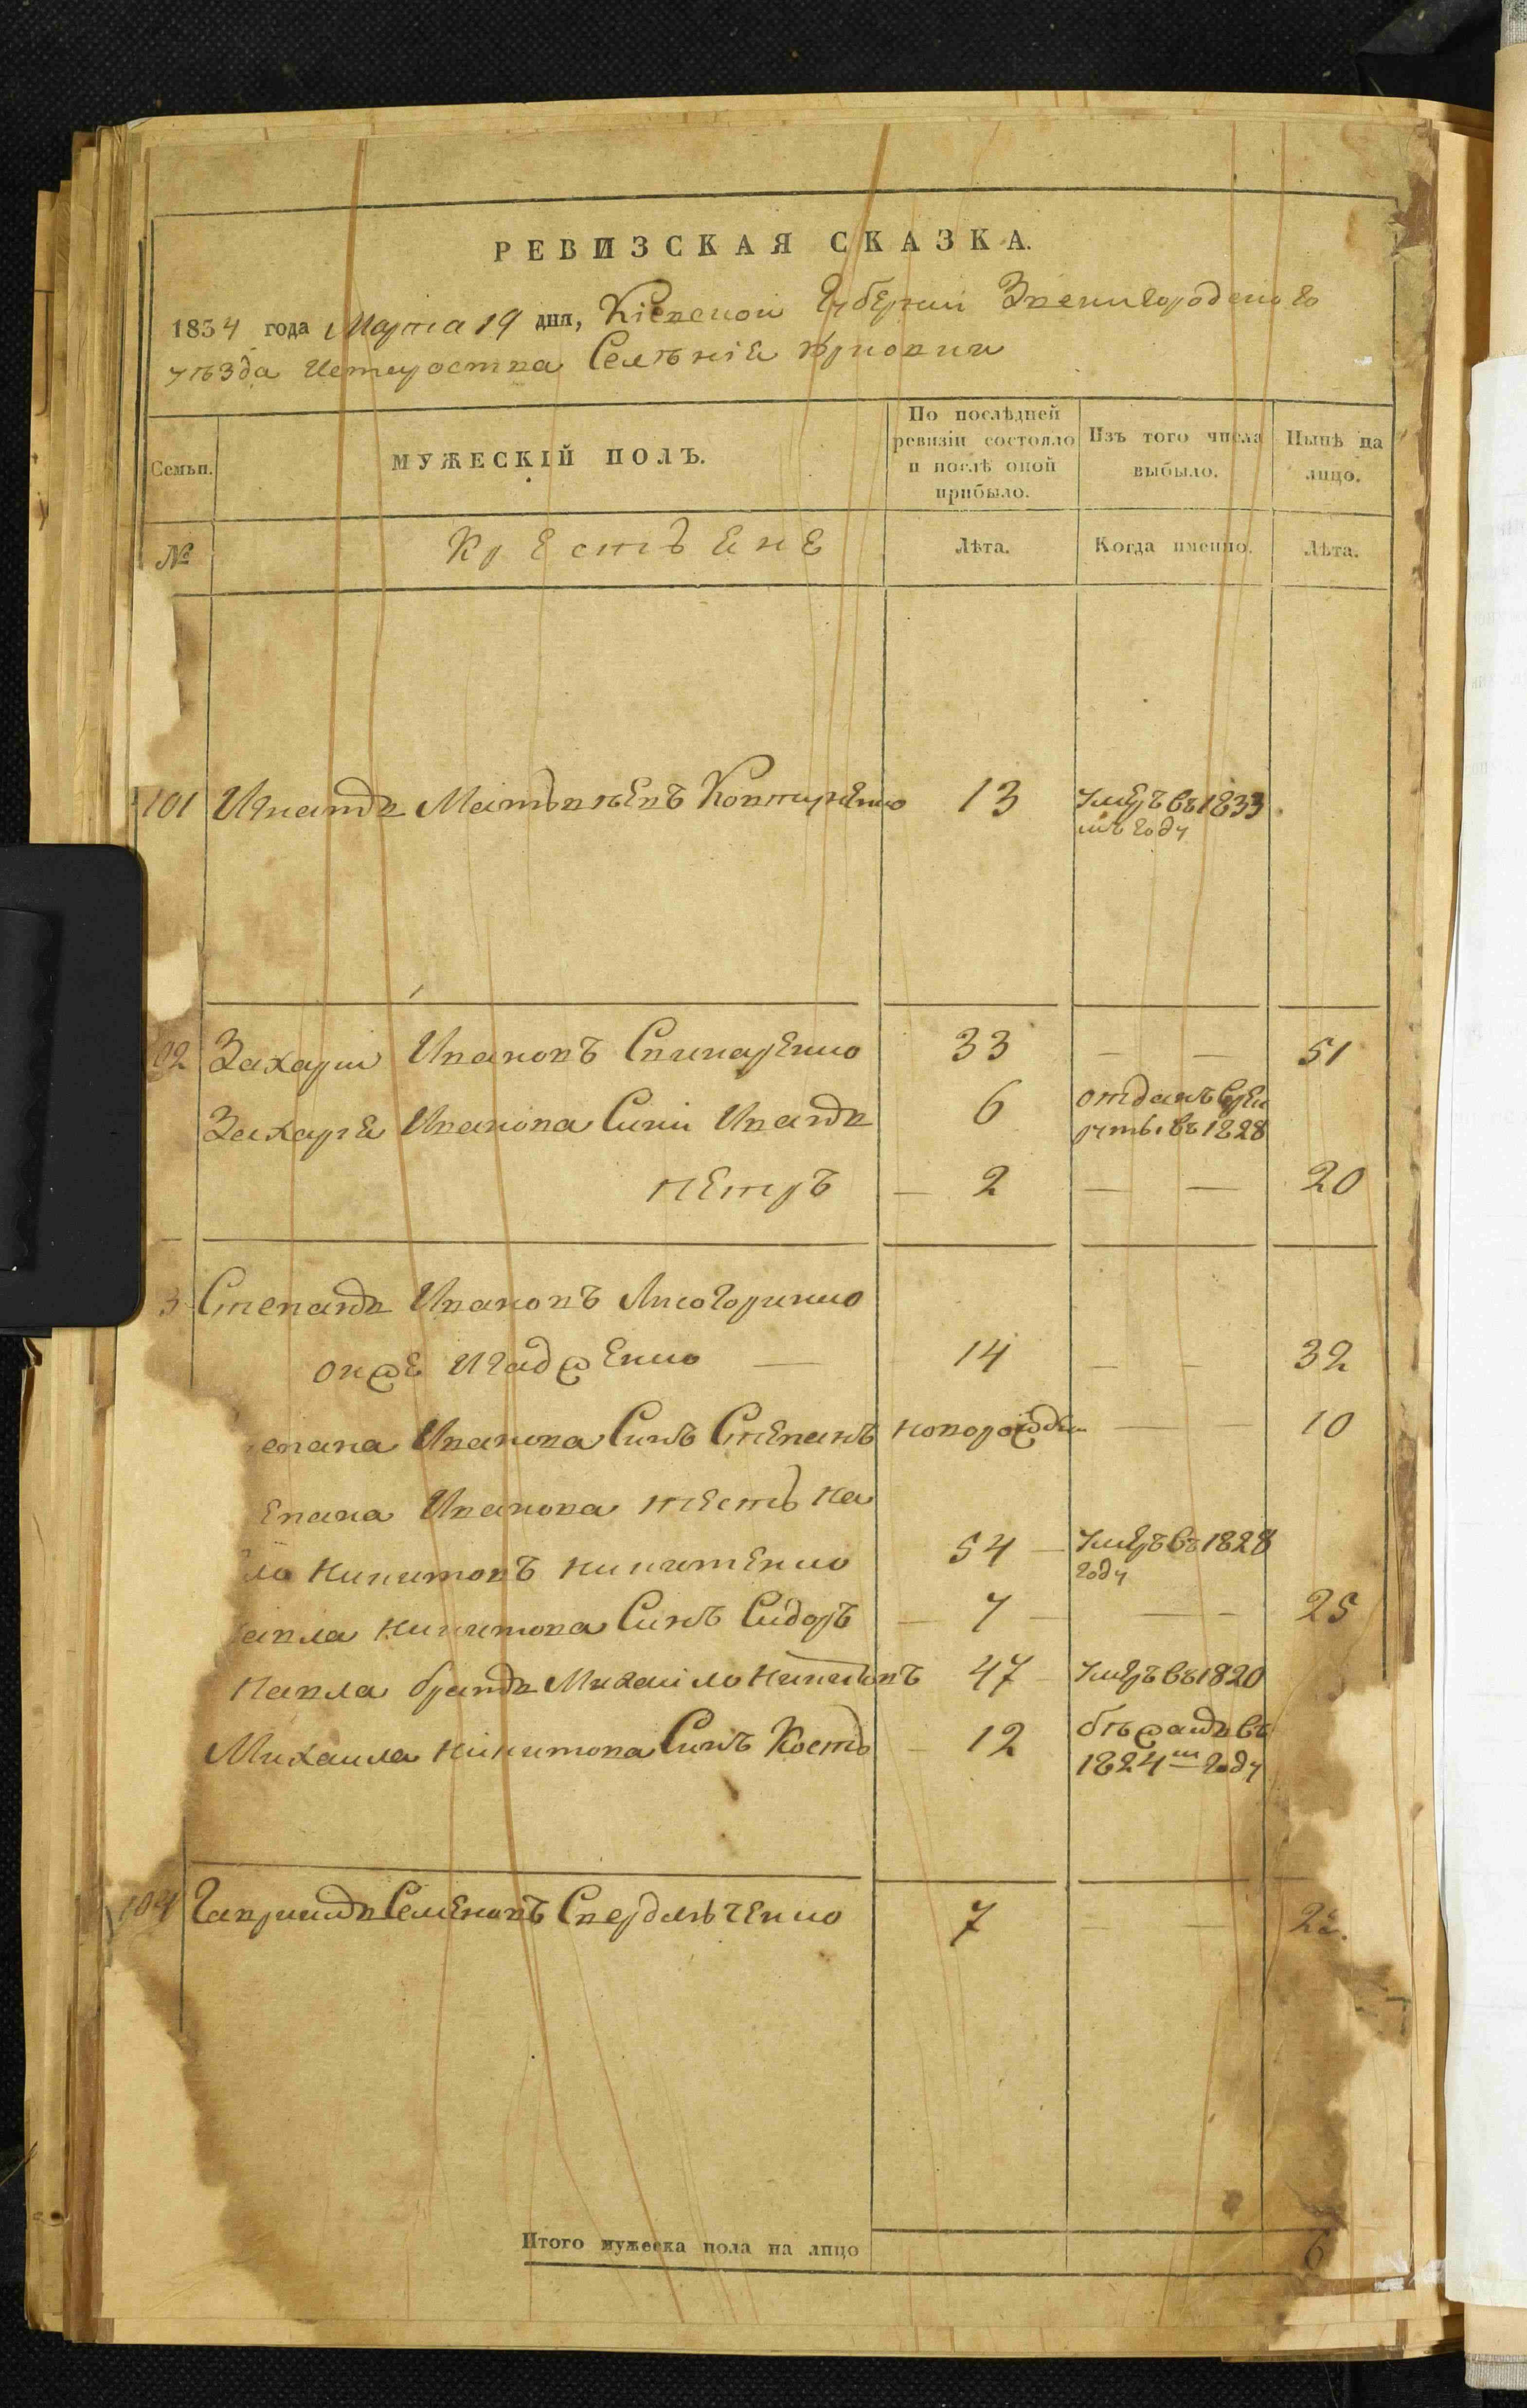 РЕВИЗСКАЯ СКАЗКА.
1834 года Марта 19 дня, Кіевской Губерніи Звенигородского
уѣзда Сѣлѣнія
Семьи. МУЖЕСКІЙ ПОЛЪ. По послѣдней ревизіи состояло и послѣ оной прибыло. Изъ того числа выбыло. Нынѣ на лицо.
№ Крестьяне Лѣта. Когда именно. Лѣта.
101 Игнатъ 13 умеръ въ 1833
мъ году
02 Захарій Ивановъ 33 — — 51
Захарія Иванова Сини Иванъ 6 отданъ врек
рути въ 1828
Петръ — 2 — — 20
3 Степанъ Ивановъ Лисогоренко
онже — 14 — — 32
епана Иванова Синъ Степанъ новорожден — — 10
епана Иванова тесть Па
ло Никитовъ Никитенко 54 — умеръ въ 1828
году
авла Никитова Синъ Сидоръ — 7 — — — 25
Павла братъ Михайло Никитовъ 47 — умеръ въ 1820
Михаила Никитова Синъ Кость 12 бѣжалъ въ
1824 м году
104 Гаврилъ Семеновъ 7 — —
Итого мужеска пола на лицо 6